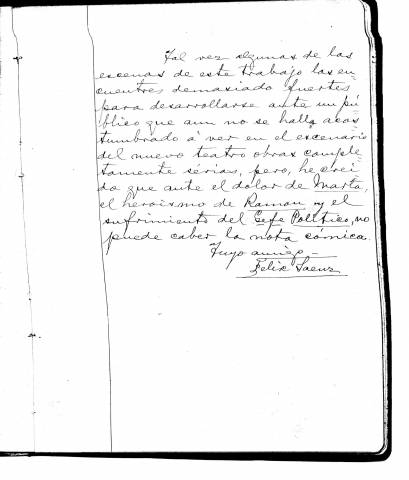 Tal vez algunas de las
escenas de este trabajo las en
cuentres demasiado fuertes
para desarrollarse ante un pú
blico que aun no se halla acos
tumbrado á ver en el escenario
del nuevo teatro obras comple
tamente serias, pero, he crei
do que ante el dolor de Marta,
el heroismo de Ramon y el
sufrimiento del Cefe Politico, no
puede caber la nota cómica.
Tuyo amigo -
Felix Saenz